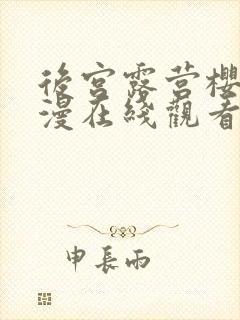 後宮露营樱
漫在綫觀看
申長雨